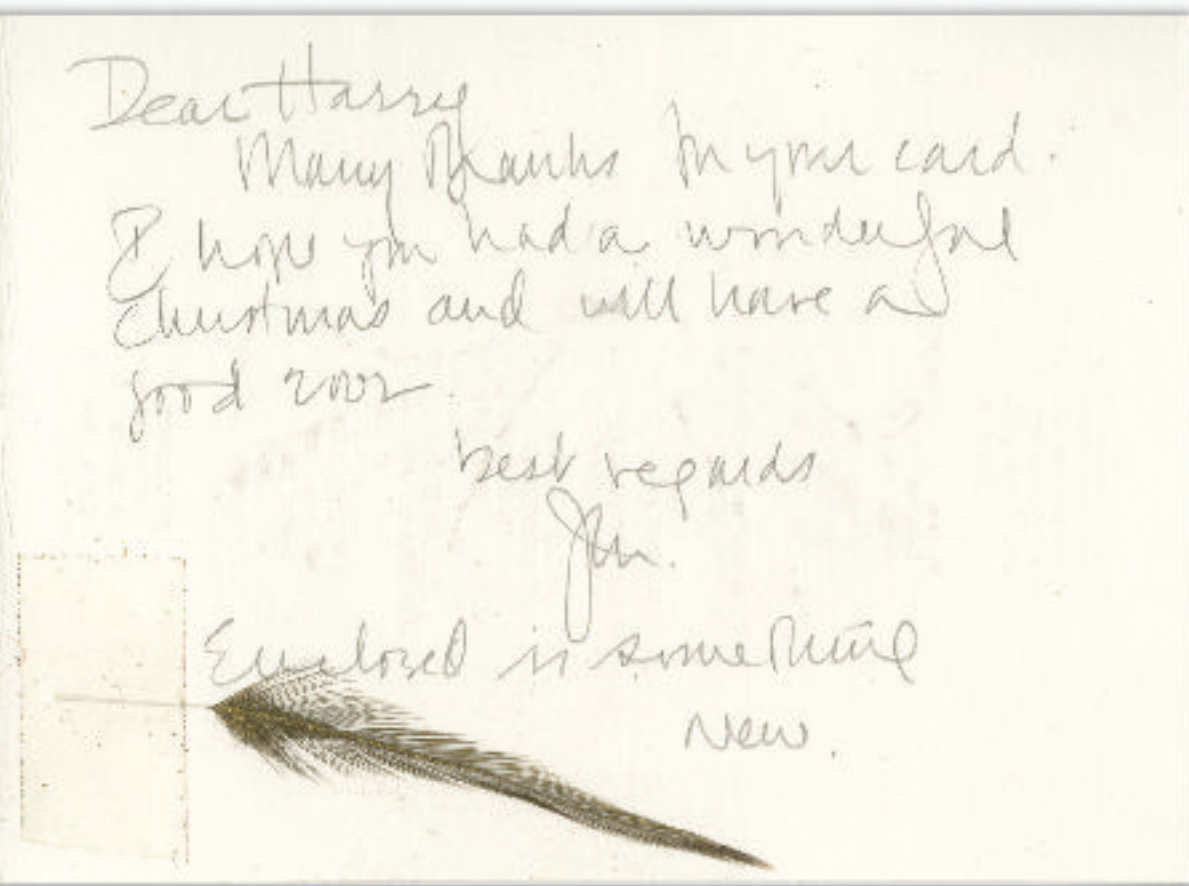 Dear Harry
Many Thanks for your card.
I hope you had a wonderful
Christmas and will have a
good 2002.
best regards
Jim.
Enclosed is something
New.